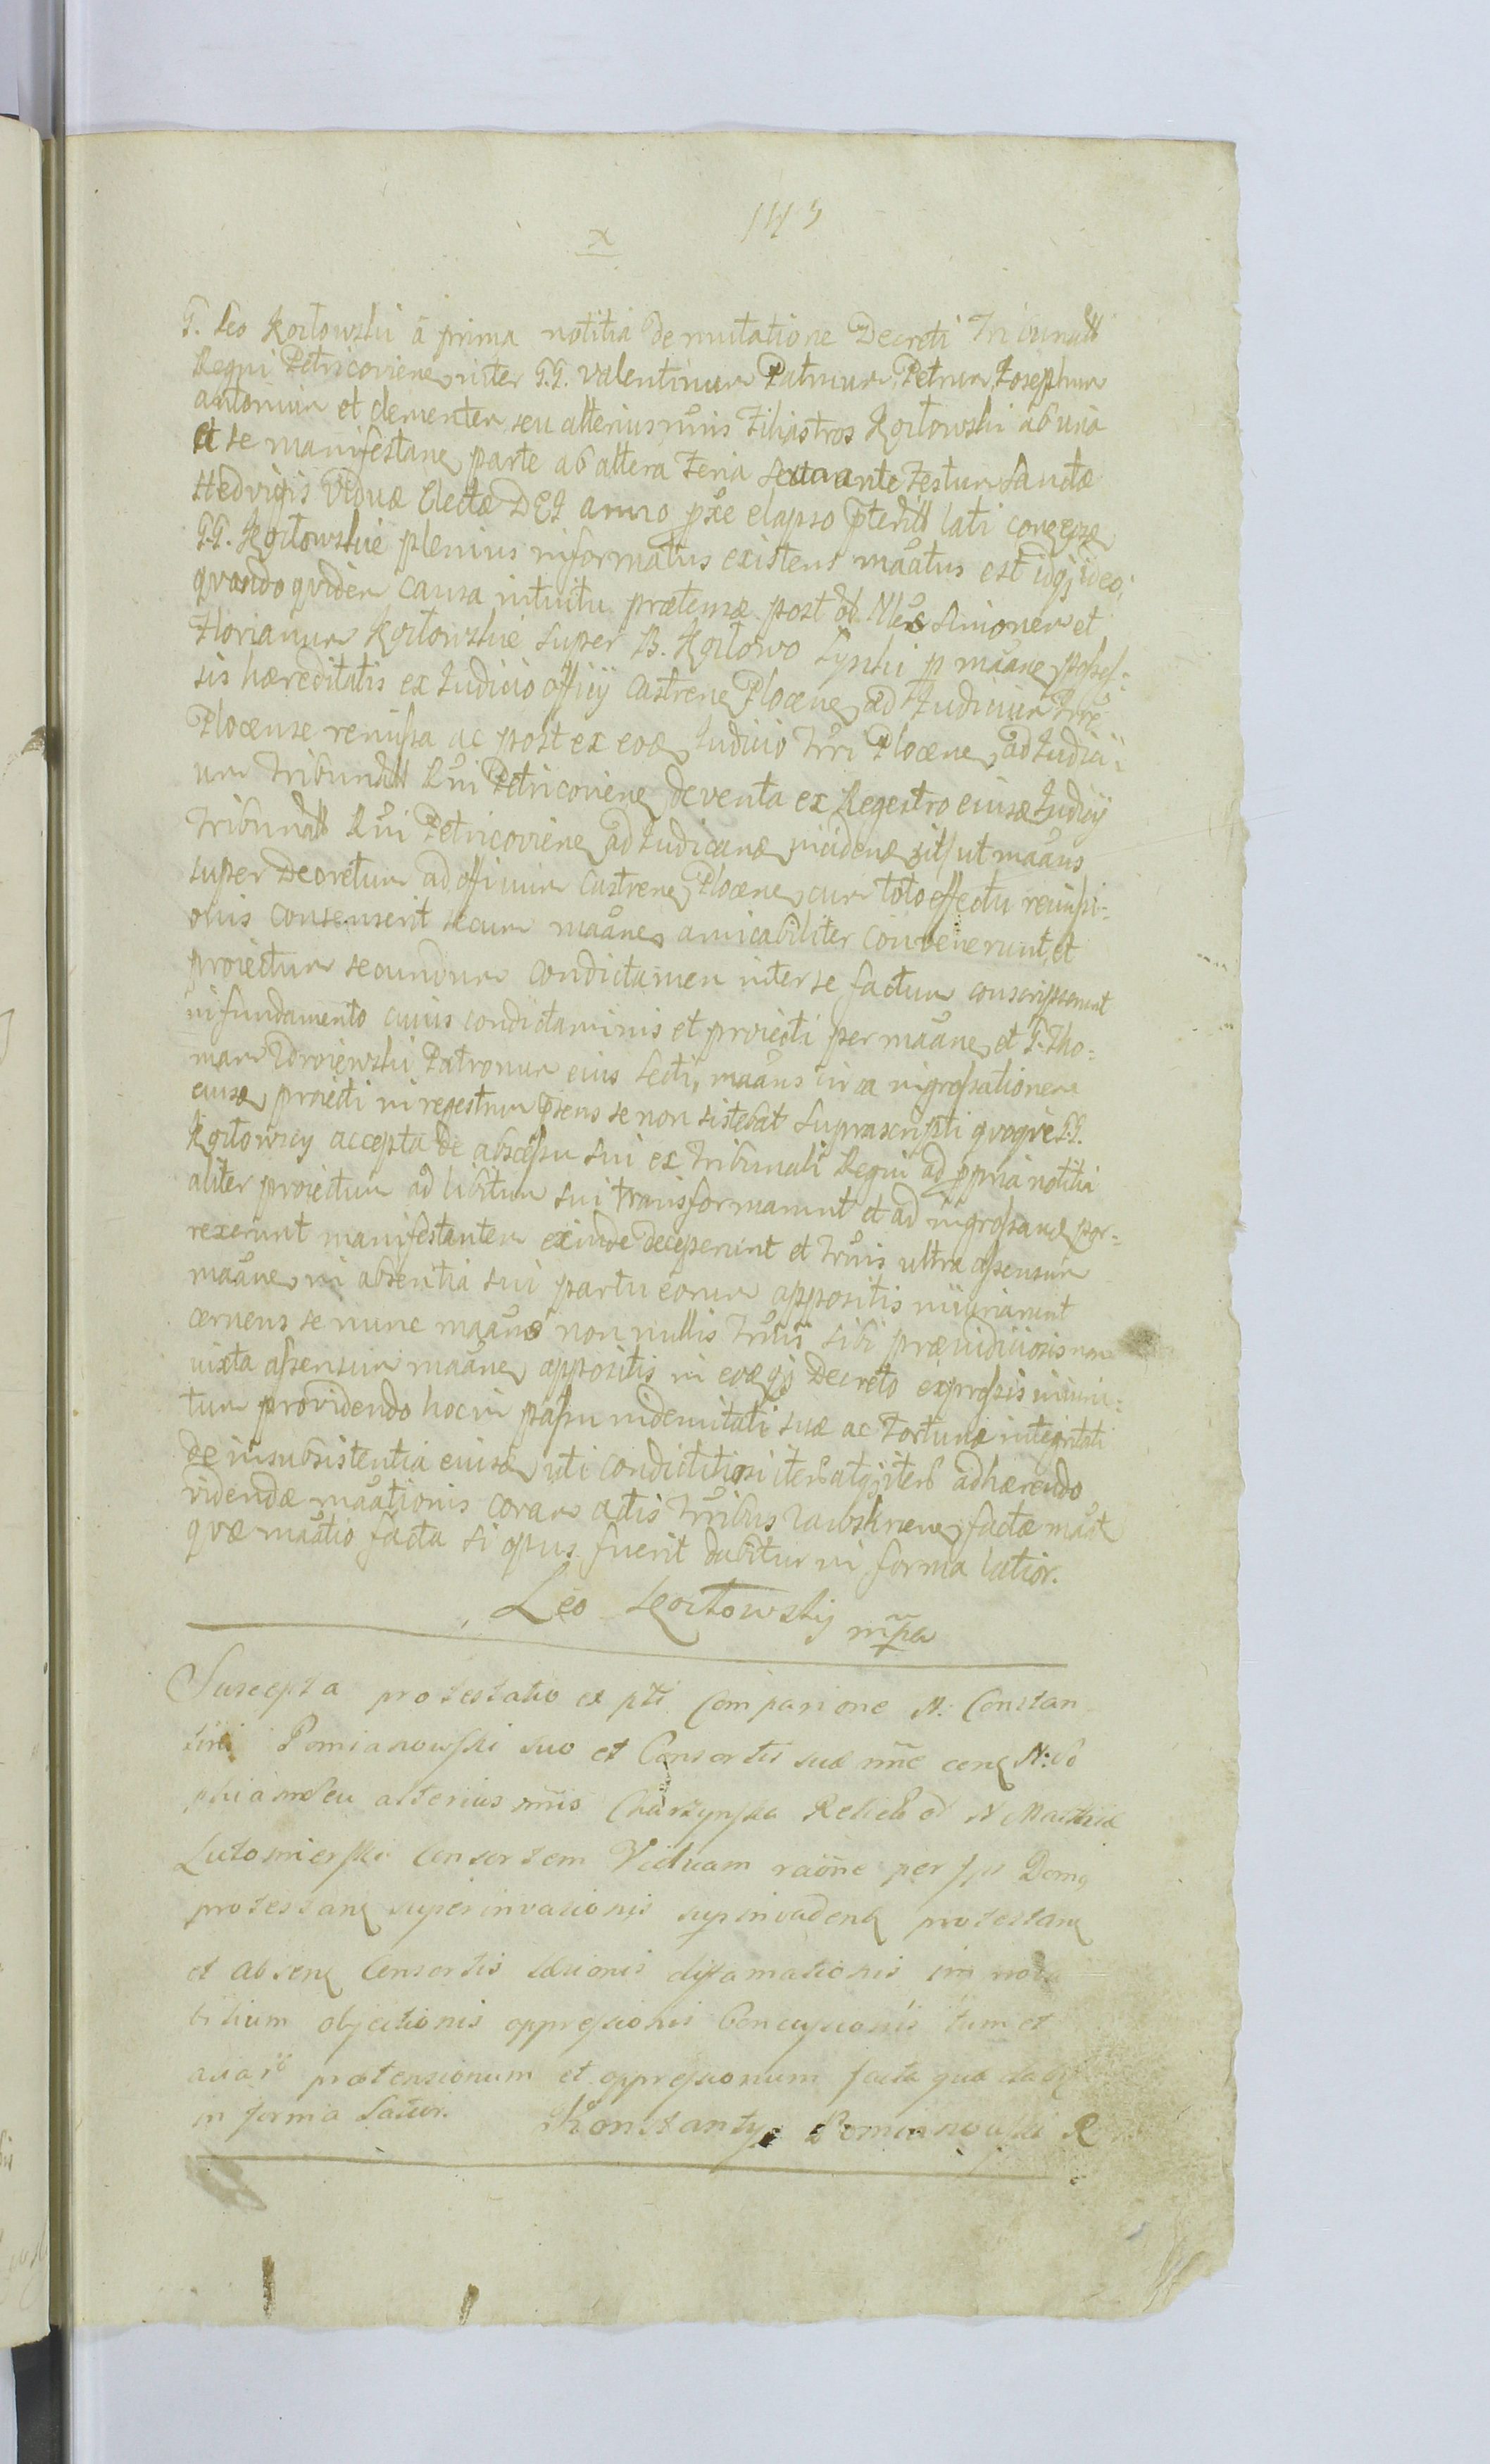 x 143
G. Leo Kozłowski á prima notitia de mutatione Decreti Tribunall
Regni Petricovienę inter G.G. Valentinum Patruum, Petrum, Josephum
antonium et clementem seu alterius nŭis Filiastros Kozłowski ab una
et se manifestanę parte ab altera Feria Sexta ante Festum Sanctæ
Hedvigis Viduæ Electæ DEI anno pxe elapso pteritt lati
G.G. Kozłowskie plenius informatus existens maatus est idqz ideo;
qvando qvidem causa intuitu prætensæ post ol. Simonem et
Florianum Kozłowskie super B. Kozłowo Łynki p maanę posses:
sis hæreditatis ex Judicio officij Castrenę Plocenę ad Judicium Trre
Plocense remissa ac post ex eoæ Judicio Trri Plocenę ad Judici:
um Tribunall Rni Petricovienę deventa ex Regestro eiusæ Judicij
Tribunall Rni Petricovienę ad Judicanæ incidenæ sit ut maans
super Decretum ad officium Castrenę Plocenę cum toto effectu remissi:
onis consenserit secum maanę amicabiliter convenerunt, et
proiectum secundum condictamen inter se factum conscripserunt
in fundamento cuius condictaminis et proiecti per maanę et G. Tho:
mam Zdroiewski Patronum eius lecti, maans circa ingrossationem
eiusæ proiecti in regestrum psens se non sistebat Suprascripti qvoqve G.G.
Kozłowscy accepta de abscessu sui ex Tribunali Regni ad ppria notitia
aliter proiectum ad libitum sui transformarunt et ad ingrossanæ por:
rexerunt manifestantem exinde deceperunt et Trnis ultra assensum
maanę in absentia sui partu eorum appositis iniuriarunt
cernens se nunc maans non nullis Trnis sibi præiudiciosis non
iuxta assensum maanę appositis in eoæ qz Decreto expressis iniuria:
tum providendo hoc in passu indemnitati suæ ac Fortunæ integritati
de insubsistentia eiusæ uti condictitiosi iterb atqz iterb adhærendo
videndæ maationis coram actis Trribus Zawskrnenę factæ maat
qvæ maatio facta si opus fuerit dabitur in forma latior.
Leo Kozłowskij mpa
Suscepta protestatio ex pti Comparione N: Constan
tini Pomianowski suo et Consortis suæ nnē conę N: So
phiam seu alterius nnis Charzynska Relictæ ol N Mathiæ
Lutomierski Consortem Viduam raōne per Ips Domę
protestanę superinvasionis supinvadenæ protestanę
et absenę Consortis læsionis diffamationis im nora
bilium objectionis oppressionis Concussionis tum et
aliarū prætensionum et oppressionum facta quæ dabę
in forma Latior. Konstanty Pomianowski R